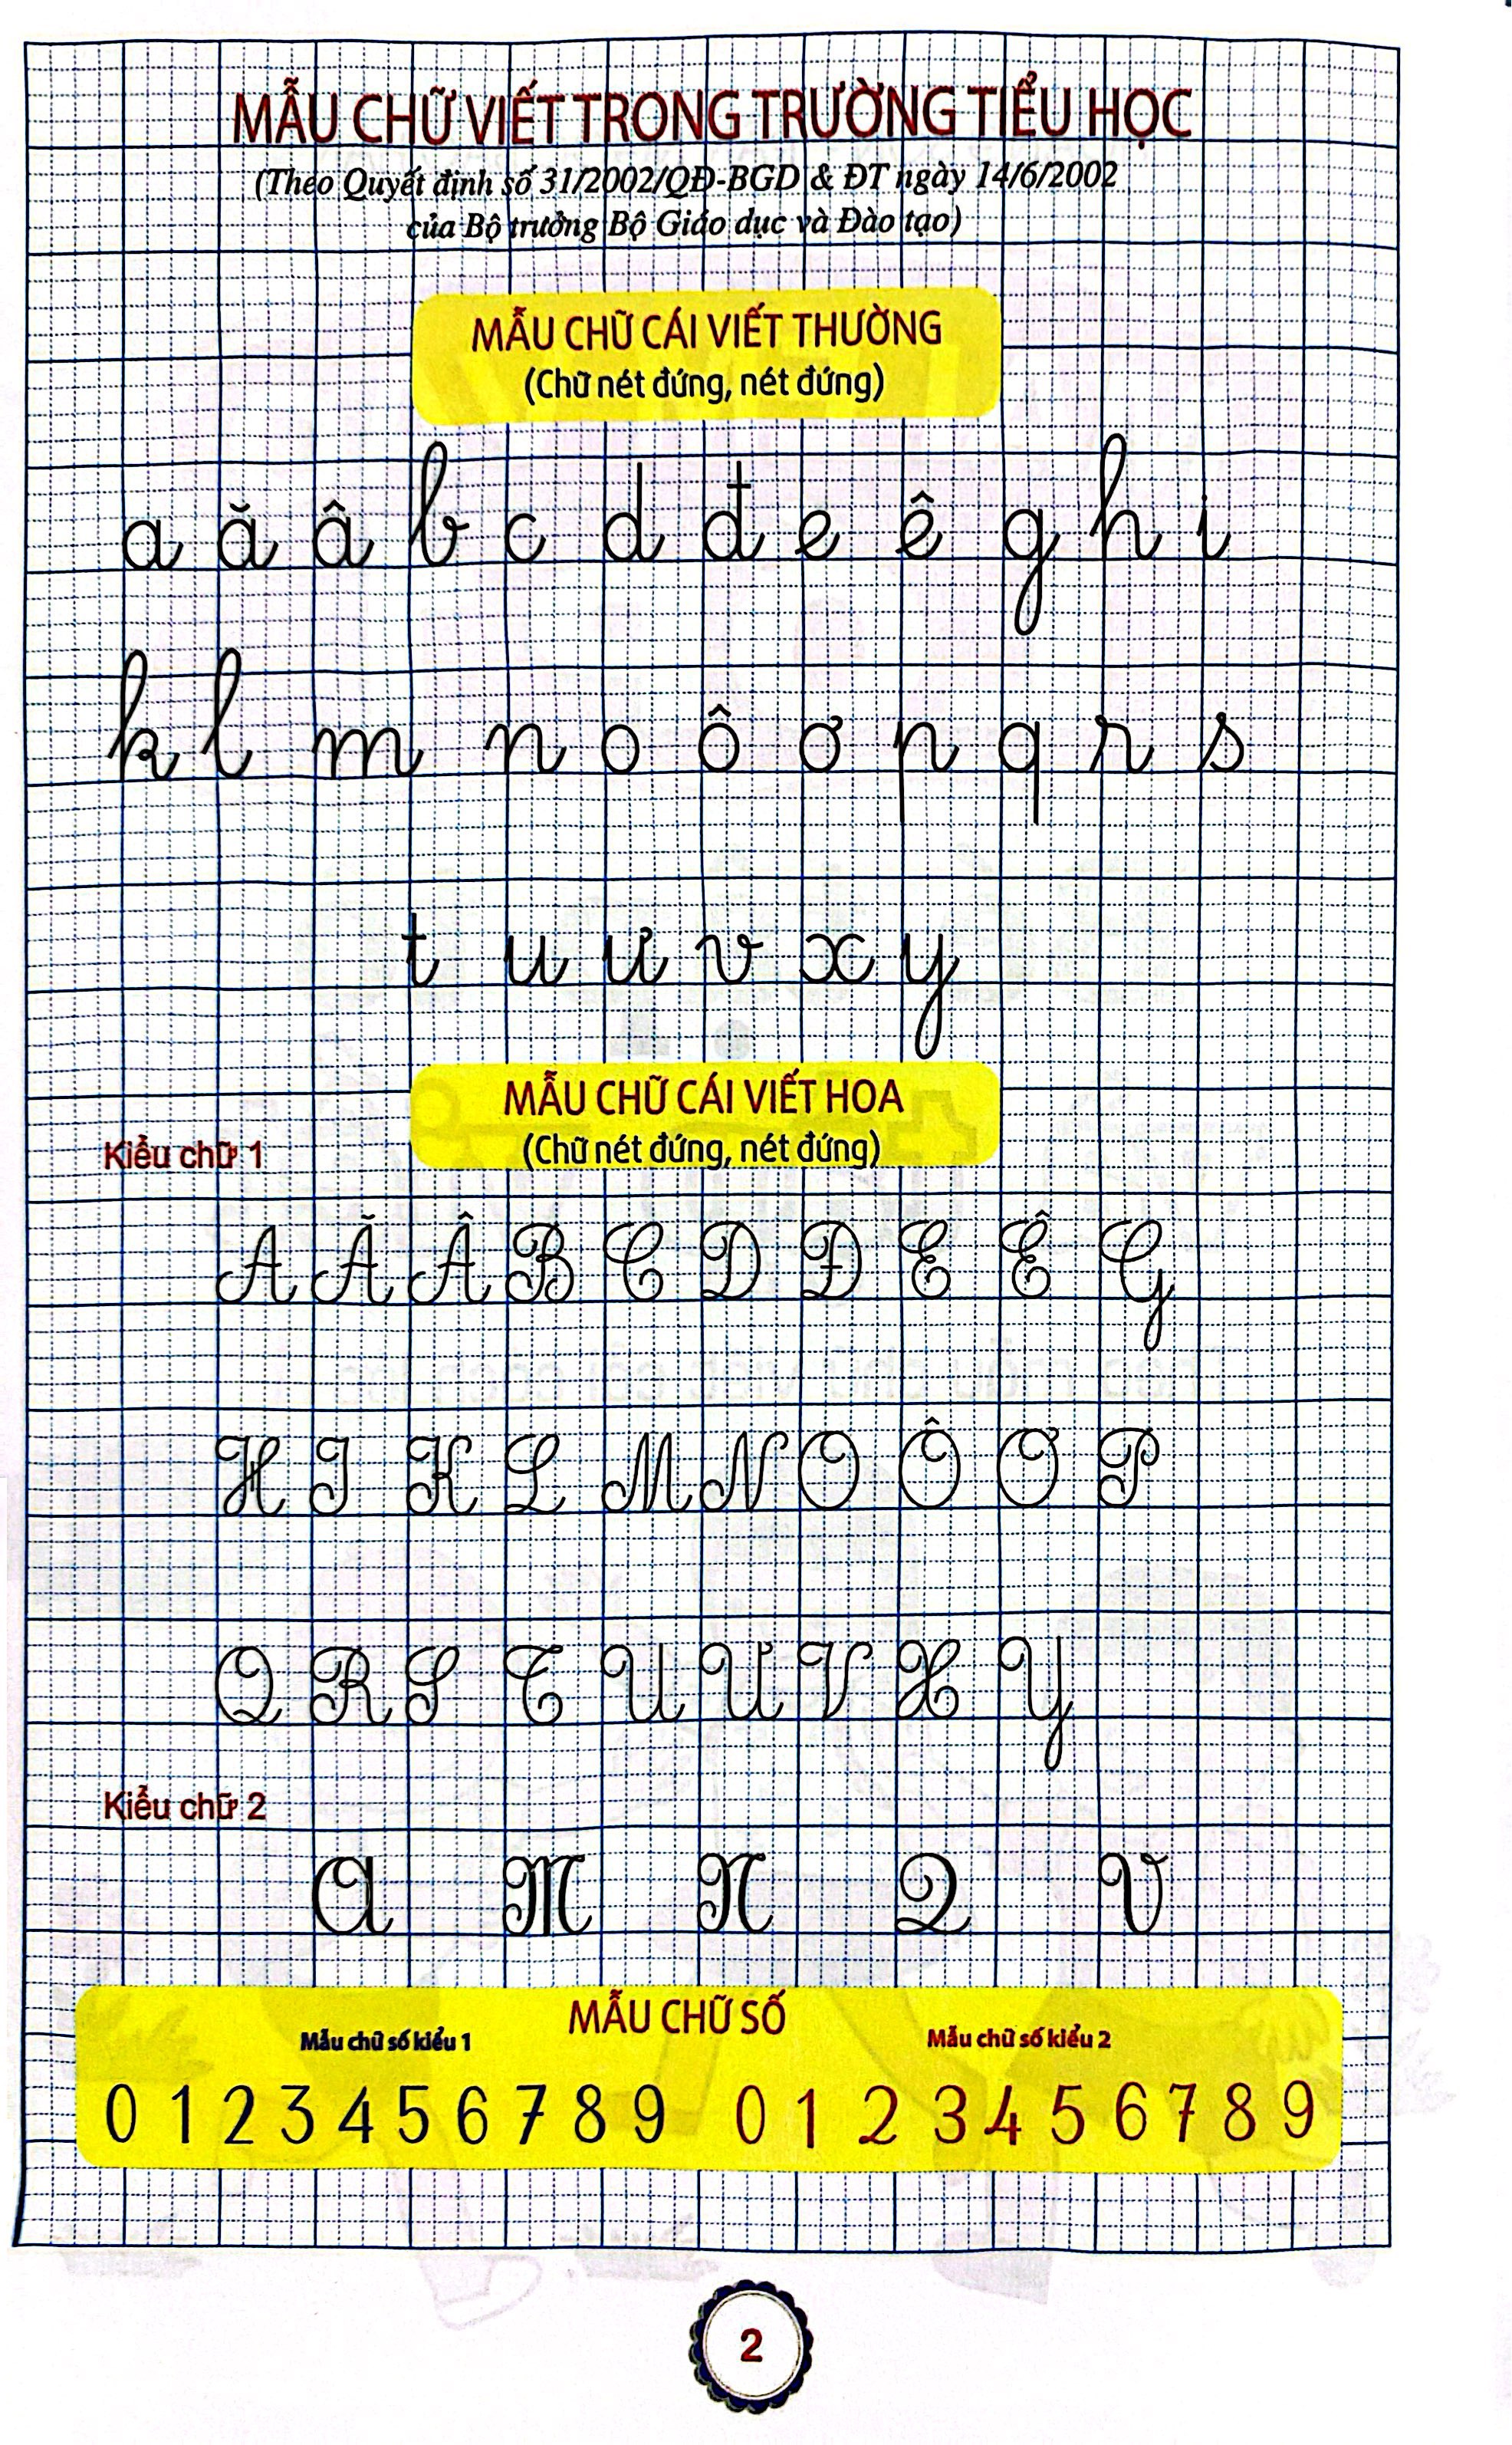 MẪU CHỮ VIẾT TRONG TRƯỜNG TIỂU HỌC
(Theo Quyết định số 31/2002/QĐ-BGD & ĐT ngày 14/6/2002
của Bộ trưởng Bộ Giáo dục và Đào tạo)
MẪU CHỮ CÁI VIẾT THƯỜNG
(Chữ nét đứng, nét đứng)
a ă â b c d đ e ê g h i
k l m n o ô ơ p q r s
t u ư v x y
MẪU CHỮ CÁI VIẾT HOA
(Chữ nét đứng, nét đứng)
Kiểu chữ 1
A Ă Â B C D Đ E Ê G
H I K L M N O Ô Ơ P
Q R S T U Ư V X Y
Kiểu chữ 2
A M N Q V
MẪU CHỮ SỐ
Mẫu chữ số kiểu 1 Mẫu chữ số kiểu 2
0 1 2 3 4 5 6 7 8 9 0 1 2 3 4 5 6 7 8 9
2